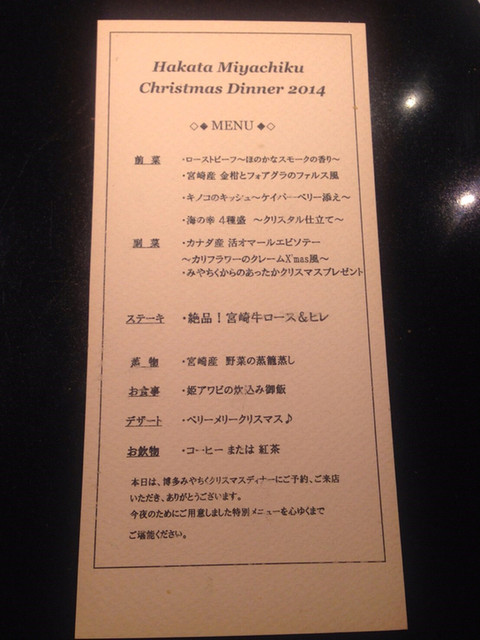 Hakata Miyachiku
Christmas Dinner 2014
◇◆ MENU ◆◇
前 菜 ・ローストビーフ~ほのかなスモークの香り~
・宮崎産 金柑とフォアグラのファルス風
・キノコのキッシュ~ケイパーベリー添え~
・海の幸 4種盛 ~クリスタル仕立て~
副 菜 ・カナダ産 活オマールエビソテー
~カリフラワーのクレームX'mas風~
・みやちくからのあったかクリスマスプレゼント
ステーキ ・絶品!宮崎牛ロース&ヒレ
蒸 物 ・宮崎産 野菜の蒸籠蒸し
お食事 ・姫アワビの炊込み御飯
デザート ・ベリーメリークリスマス♪
お飲物 ・コーヒー または 紅茶
本日は、博多みやちくクリスマスディナーにご予約、ご来店
いただき、ありがとうございます。
今夜のためにご用意しました特別メニューを心ゆくまで
ご堪能ください。